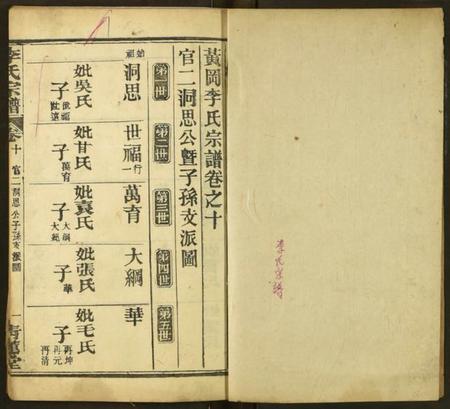 李氏宗譜
黃岡李氏宗譜卷之十
官二洞思公暨子孫支派圖
第一世
第二世
第三世
第四世
第五世
始祖
洞思
世福行一
萬育
大綱
華
妣吳氏
子世福
妣甘氏
子萬育
妣袁氏
子大綱
妣張氏
子華
妣毛氏
子再坤
再元
再清
李氏宗譜
卷十
官二洞思公子孫支派圖
一